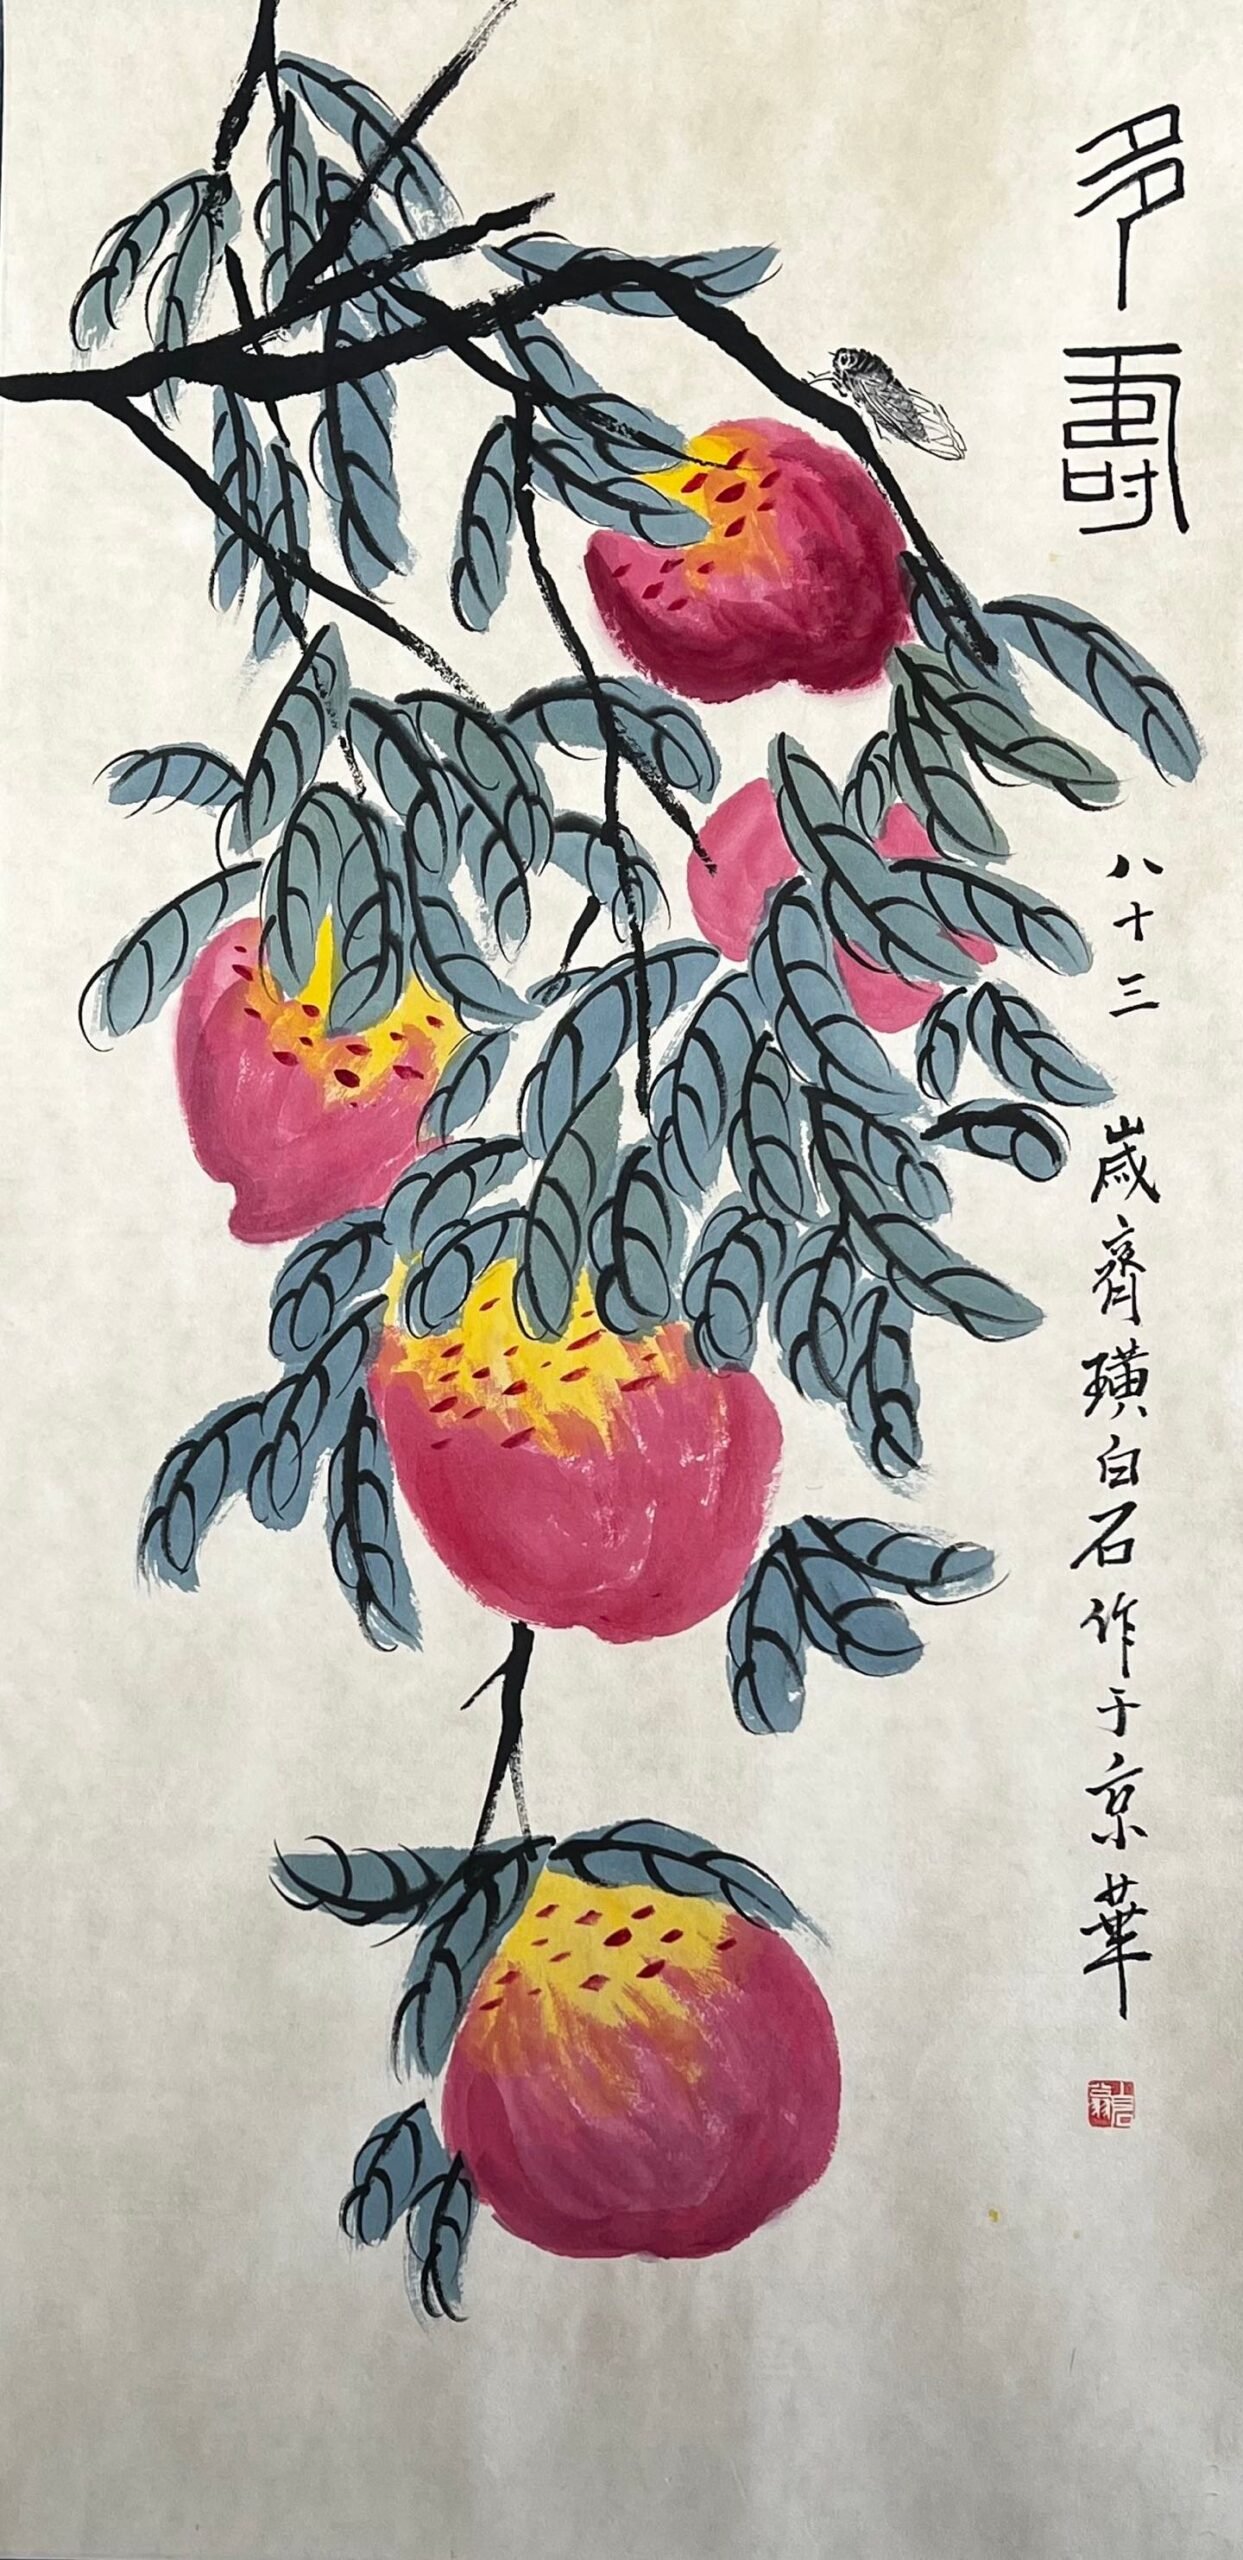 多壽
八十三歲齊璜白石作于京華